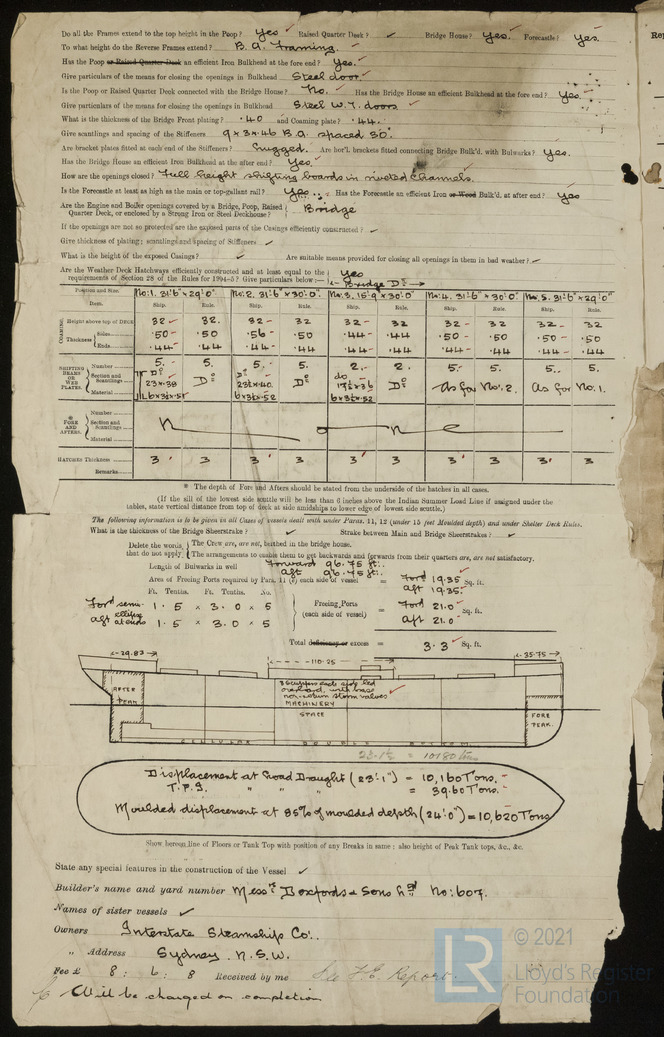 Do all the Frames extend to the top height in the Poop? Yes Raised Quarter Deck? ✓ Bridge House? Yes. Forecastle? Yes.
To what height do the Reverse Frames extend? B.A. Framing.
Has the Poop or Raised Quarter Deck an efficient Iron Bulkhead at the fore end? Yes.
Give particulars of the means for closing the openings in Bulkhead Steel door.
Is the Poop or Raised Quarter Deck connected with the Bridge House? No. Has the Bridge House an efficient Bulkhead at the fore end? Yes.
Give particulars of the means for closing the openings in Bulkhead Steel W.T. doors
What is the thickness of the Bridge Front plating? ·40 and Coaming plate? ·44
Give scantlings and spacing of the Stiffeners 9 x 3 x ·46 B.A. spaced 30".
Are bracket plates fitted at each end of the Stiffeners? Lugged. Are hor'l. brackets fitted connecting Bridge Bulk'd. with Bulwarks? Yes.
Has the Bridge House an efficient Iron Bulkhead at the after end? Yes.
How are the openings closed? Full height shifting boards in riveted channels.
Is the Forecastle at least as high as the main or top-gallant rail? Yes. Has the Forecastle an efficient Iron or Wood Bulk'd. at after end? Yes
Are the Engine and Boiler openings covered by a Bridge, Poop, Raised Quarter Deck, or enclosed by a Strong Iron or Steel Deckhouse? Bridge
If the openings are not so covered are the exposed parts of the Casings efficiently constructed? ✓
Give thickness of plating; scantlings and spacing of Stiffeners ✓
What is the height of the exposed Casings? ✓ Are suitable means provided for closing all openings in them in bad weather? ✓
Are the Weather Deck Hatchways efficiently constructed and at least equal to the requirements of Section 28 of the Rules for 1904-5? Give particulars below:— Yes
Bridge Dk
Position and Size. No:1. 31'6" x 29'0" No:2. 31'6" x 30'0" No:3. 16'9 x 30'0" No:4. 31'6" x 30'0" No:5. 31'6" x 29'0"
Item. Ship. Rule. Ship. Rule. Ship. Rule. Ship. Rule. Ship. Rule.
COAMING. Height above top of DECK 32 32. 32 32 32 32 32 32 32 32
Thickness Sides ·50 ·50 ·56 ·50 ·44 ·44 ·50 ·50 ·50 ·50
Ends ·44 ·44 ·44 ·44 ·44 ·44 ·44 ·44 ·44 ·44
SHIFTING BEAMS OR WEB PLATES. Number 5. 5. 5. 5. 2. 2. 5. 5. 5. 5.
Section and Scantlings Do Do do Do As for No: 2. As for No. 1.
Material
* FORE AND AFTERS. Number
Section and Scantlings N o n e
Material
HATCHES Thickness 3 3 3 3 3 3 3 3 3 3
Remarks
* The depth of Fore and Afters should be stated from the underside of the hatches in all cases.
(If the sill of the lowest side scuttle will be less than 6 inches above the Indian Summer Load Line if assigned under the
tables, state vertical distance from top of deck at side amidships to lower edge of lowest side scuttle.)
The following information is to be given in all Cases of vessels dealt with under Paras. 11, 12 (under 15 feet Moulded depth) and under Shelter Deck Rules.
What is the thickness of the Bridge Sheerstrake? ✓ Strake between Main and Bridge Sheerstrakes? ✓
Delete the words that do not apply. The Crew are, are not, berthed in the bridge house.
The arrangements to enable them to get backwards and forwards from their quarters are, are not satisfactory.
Length of Bulwarks in well Forward 96.75 ft.
Aft 96.75 ft.
Area of Freeing Ports required by Para. 11 (e) each side of vessel = Ford 19.35 Sq. ft.
Aft 19.35
Ft. Tenths. Ft. Tenths. No.
Ford 1 . 5 x 3 . 0 x 5 Freeing Ports = Ford 21.0 Sq. ft.
Aft 1 . 5 x 3 . 0 x 5 (each side of vessel) Aft 21.0
Total deficiency or excess = 3.3 Sq. ft.
29.83 110.25 35.75
AFTER PEAK
3 Scuppers each side led overboard, with non-return storm valves
MACHINERY SPACE
FORE PEAK.
CELLULAR DOUBLE BOTTOM
Displacement at Load Draught (23'.1") = 10,160 Tons.
T.P.I. " " " = 39.60 Tons.
Moulded displacement at 85% of moulded depth (24'.0") = 10,620 Tons
Show hereon line of Floors or Tank Top with position of any Breaks in same; also height of Peak Tank tops, &c., &c.
State any special features in the construction of the Vessel ✓
Builder's name and yard number Messrs Doxfords & Sons Ltd No: 607.
Names of sister vessels ✓
Owners Interstate Steamship Co:.
" Address Sydney. N.S.W.
Fee £ 8 : 6 : 8 Received by me See F.E. Report.
Will be charged on completion
© 2021
Lloyd's Register
Foundation
LR